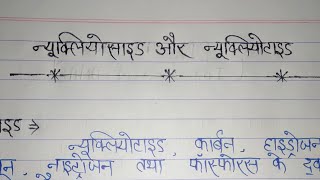 न्यूक्लियोसाइड और न्यूक्लियोटाइड
इड ⇒
न्यूक्लियोटाइड, कार्बन, हाइड्रोजन
न, नाइट्रोजन तथा फॉस्फोरस के